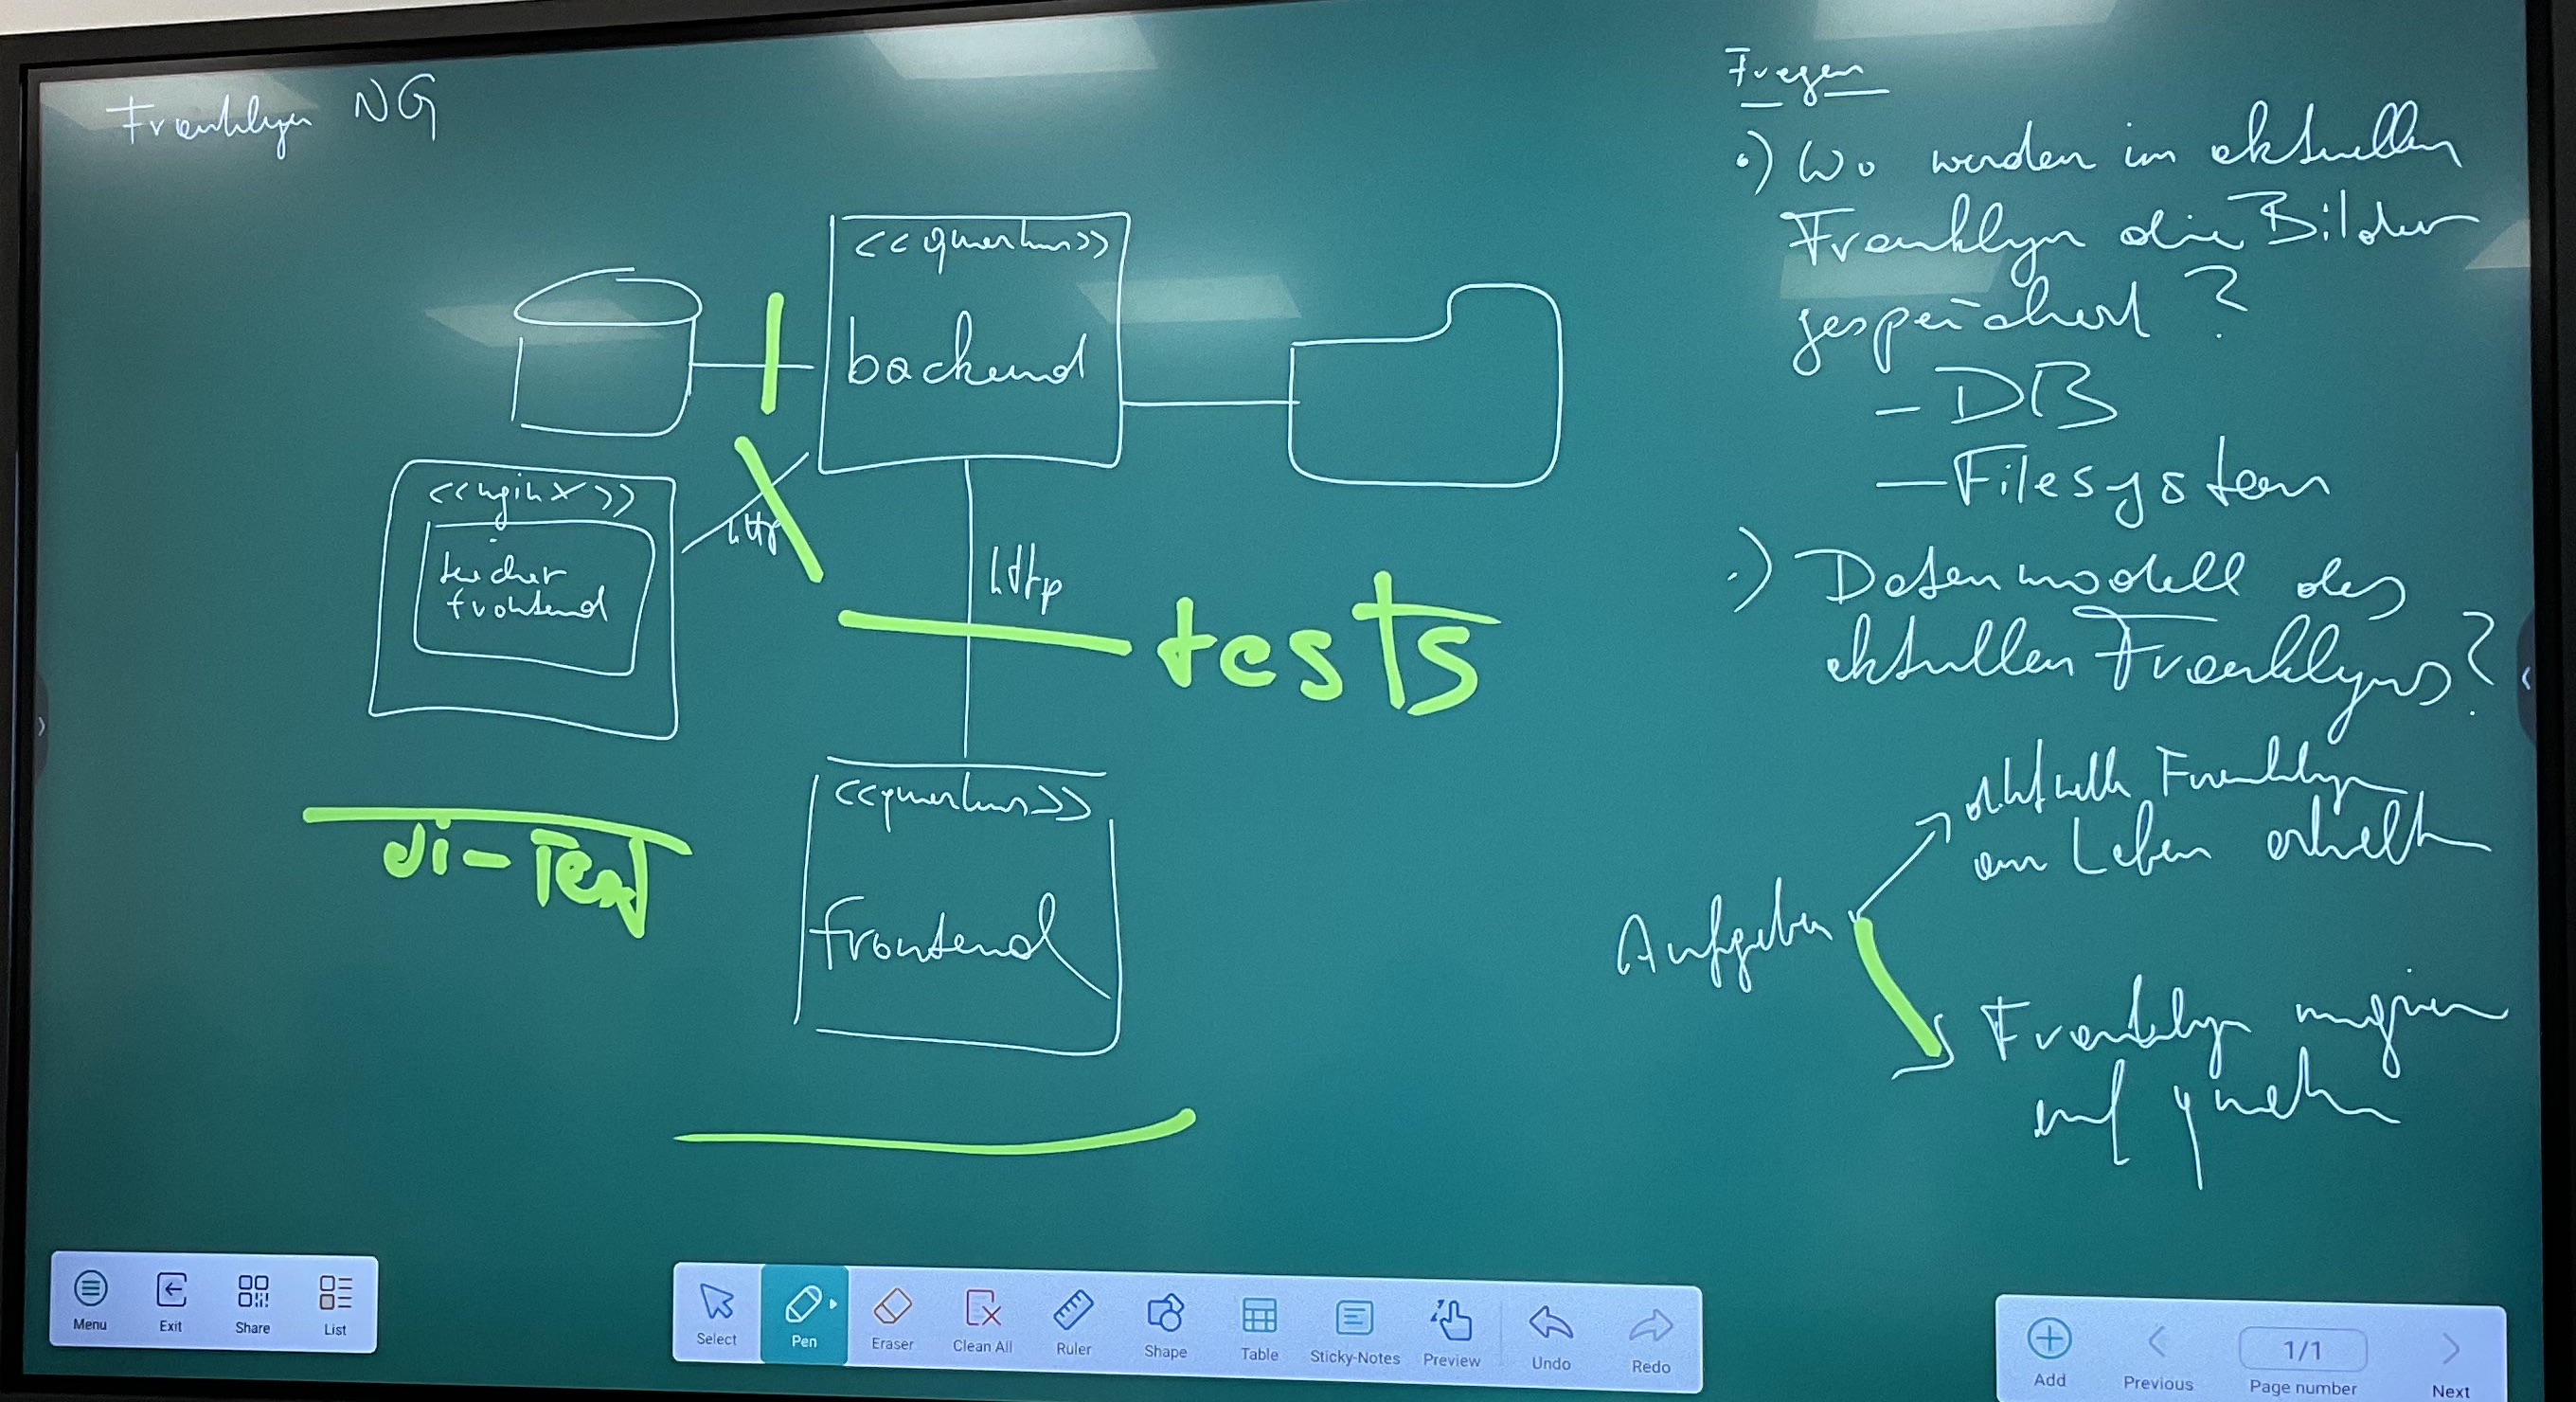 Franklyn NG
<<quarkus>>
backend
<<nginx>>
teacher
frontend
http
http
tests
<<quarkus>>
frontend
ui-Test
Fragen
•) Wo werden im aktuellen
Franklyn die Bilder
gespeichert?
- DB
- Filesystem
•) Datenmodell des
aktuellen Franklyns?
Aufgaben
aktuelle Franklyn
am Leben erhalten
Franklyn migrieren
auf quarkus
Menu
Exit
Share
List
Select
Pen
Eraser
Clean All
Ruler
Shape
Table
Sticky-Notes
Preview
Undo
Redo
Add
Previous
1/1
Page number
Next